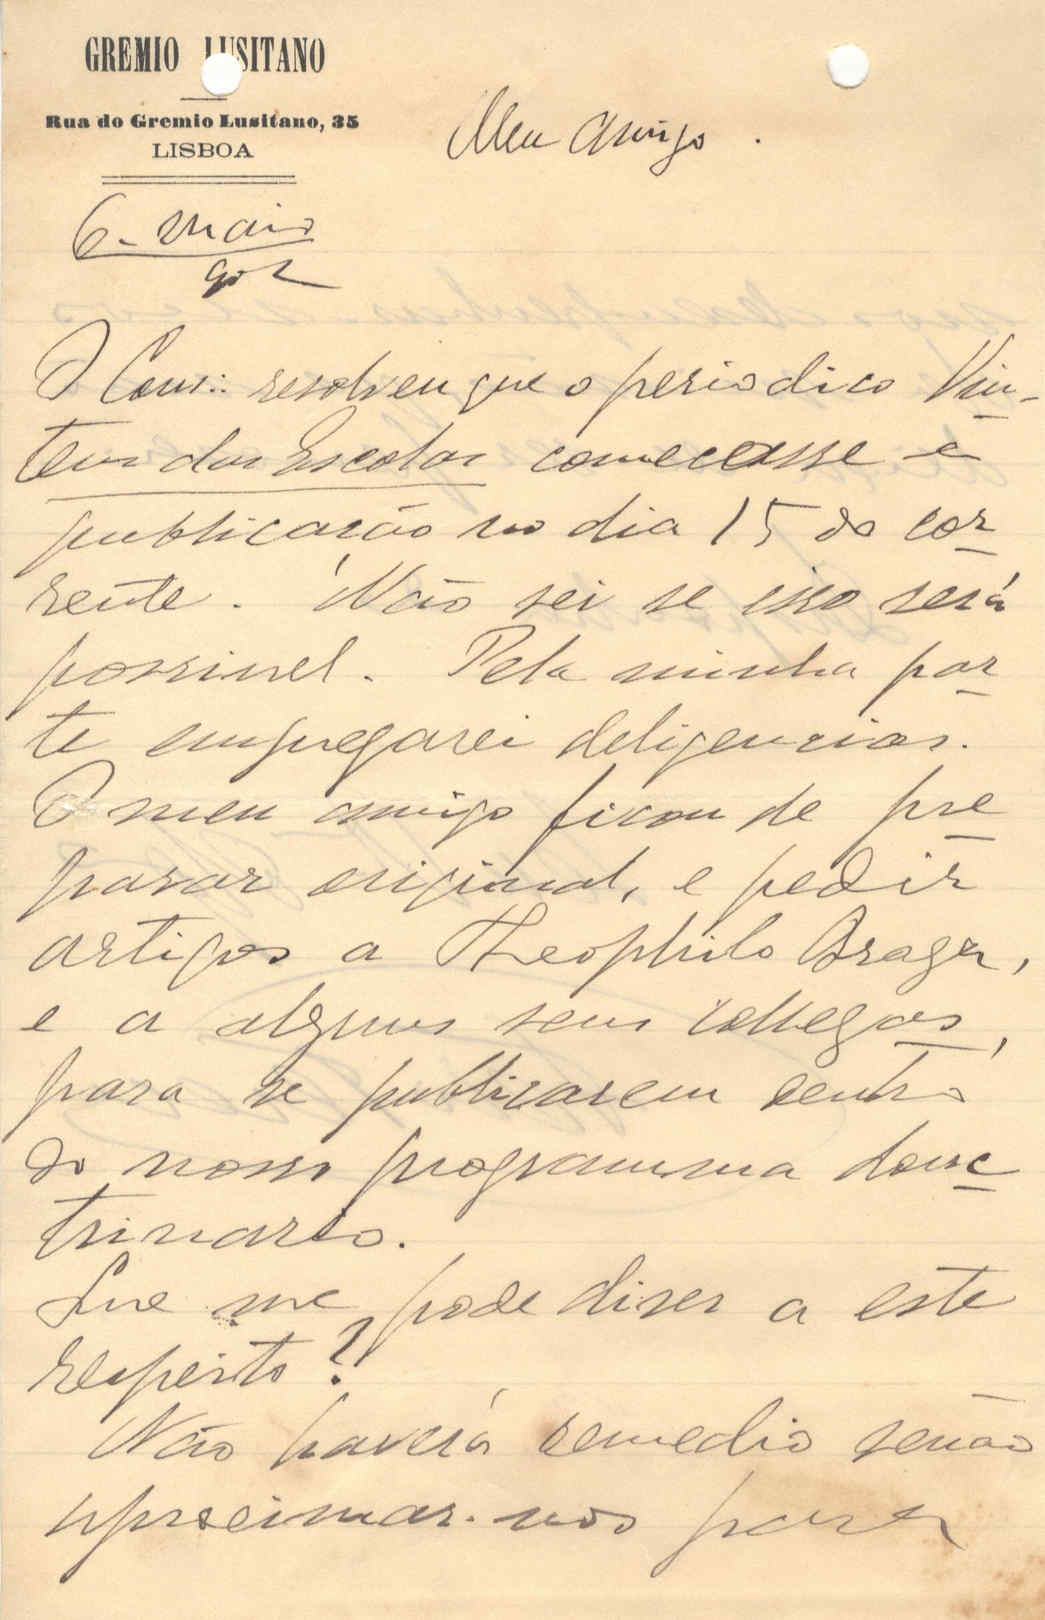 GREMIO LUSITANO
Rua do Gremio Lusitano, 35
LISBOA
Meu amigo.
6 - maio
902
O Cons∴ resolveu que o periodico Vin-
tem das Escolas comecasse a
publicação no dia 15 do cor-
rente. Não sei se isso será
possivel. Pela minha par-
te empregarei deligencias.
O meu amigo ficou de pre-
parar original, e pedir
artigos a Theophilo Braga,
e a alguns seus collegas,
para se publicarem dentro
do nosso programma douc-
trinario.
Que me pode dizer a este
respeito?
Não haverá remedio senão
aproximar-nos para